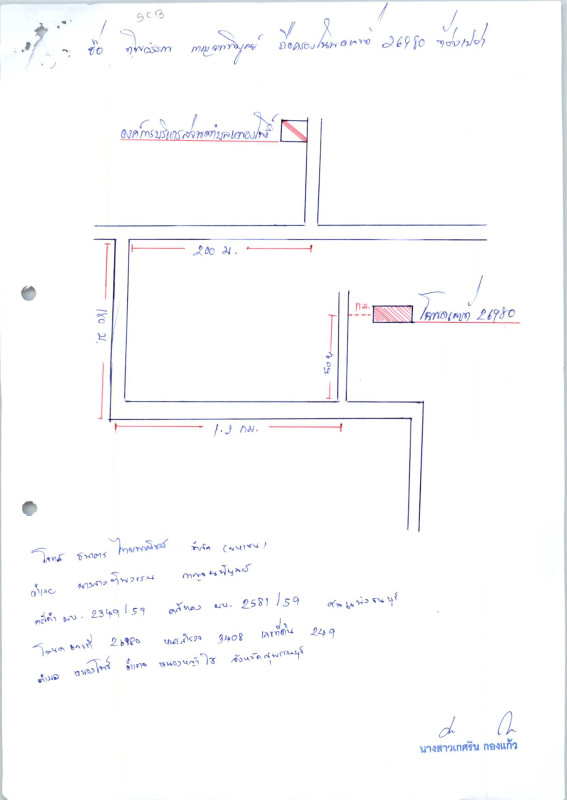 SCB
ชื่อ ทิพวรรณ กาญจนพิบูลย์ ถือครองโฉนดเลขที่ 26980 ที่ว่างเปล่า
องค์การบริหารส่วนตำบลหนองโพธิ์
200 ม.
โฉนดเลขที่ 26980
180 ม.
1.2 กม.
โจทก์ ธนาคาร ไทยพาณิชย์ จำกัด (มหาชน)
จำเลย ทิพวรรณ กาญจนพิบูลย์
คดีดำ ผบ. 2349/59 คดีแดง ผบ. 2581/59 ศาลแพ่งธนบุรี
โฉนดเลขที่ 26980 หน้าสำรวจ 3408 เลขที่ดิน 249
ตำบล หนองโพธิ์ อำเภอ หนองหญ้าไซ จังหวัดสุพรรณบุรี
นางสาวเกศริน กองแก้ว